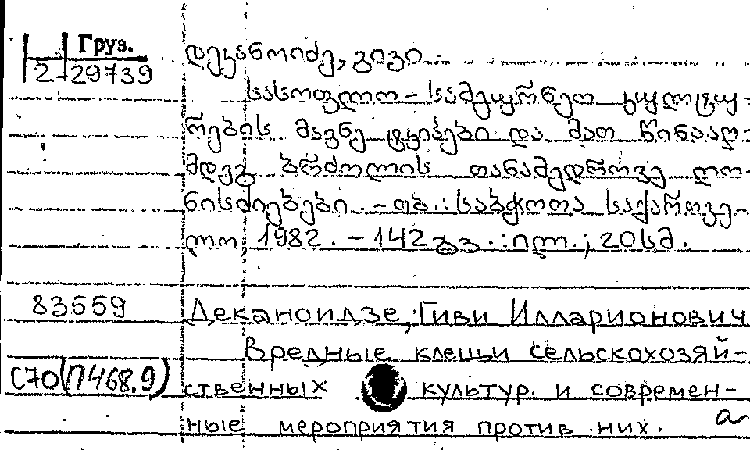 Груз.
2-29739
დეკანოიძე, გივი.
სასოფლო-სამეურნეო კულტუ-
რების მავნე ტკიპები და მათ წინააღ-
მდეგ ბრძოლის თანამედროვე ღო-
ნისძიებები. - თბ.: საბჭოთა საქართვე-
ლო, 1982. - 142 გვ.: ილ.; 20 სმ.
83559
Деканоидзе, Гиви Илларионович
Вредные клещи сельскохозяй-
С70(П468.9)
ственных культур и современ-
ные мероприятия против них.
а